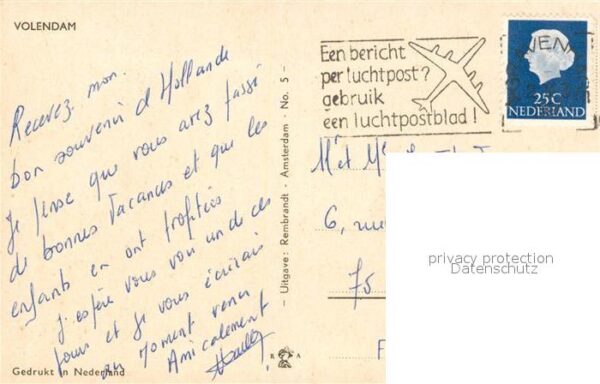 VOLENDAM
Recevez mon
bon souvenir d Hollande
Je pense que vous avez passé
de bonnes vacances et que les
enfants en ont profités
J'espère vous voir un de ces
jours et je vous écrirais
au moment venu
Amicalement
Gedrukt in Nederland
- Uitgave: Rembrandt - Amsterdam - No. 5 -
R A
Een bericht
per luchtpost?
gebruik
een luchtpostblad!
25 C
NEDERLAND
Mr et Mme
6, rue
75
privacy protection
Datenschutz